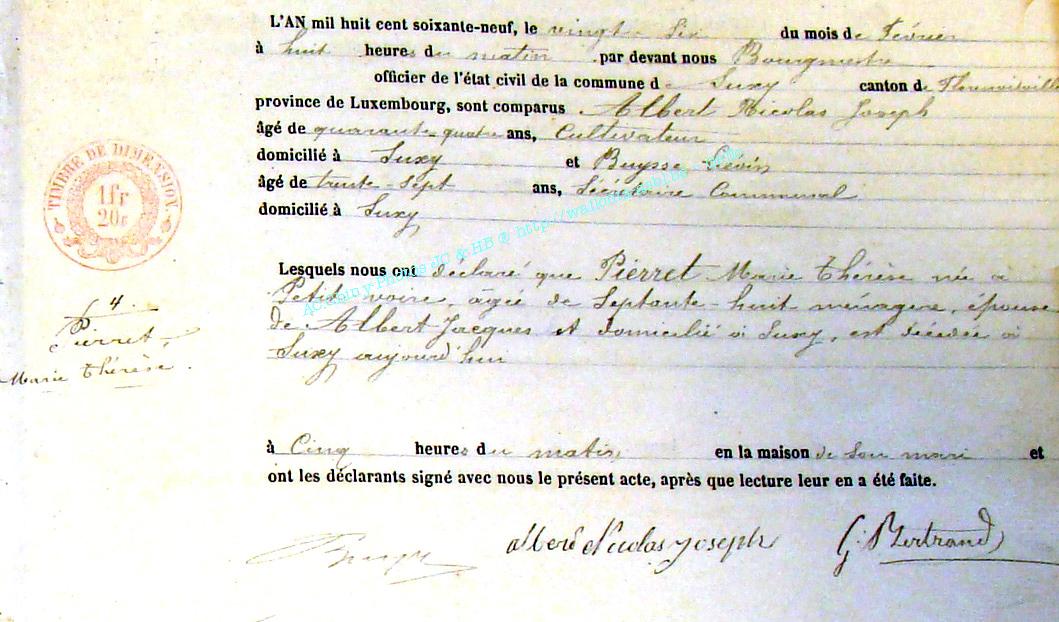 L'AN mil huit cent soixante-neuf, le vingt six du mois de Février
à huit heures du matin par devant nous Bourgmestre
officier de l'état civil de la commune de Suxy canton de Florenville
province de Luxembourg, sont comparus Albert Nicolas Joseph
âgé de quarante-quatre ans, Cultivateur
domicilié à Suxy et Buysse Liévin
âgé de trente-sept ans, Sécrétaire Communal
domicilié à Suxy
TIMBRE DE DIMENSION.
1fr
20c
Lesquels nous ont déclaré que Pierret Marie Thérèse née à
Petit voire, âgée de Septante-huit ménagère, épouse
de Albert Jacques et domicilié à Suxy, est décédée à
Suxy aujourd'hui
4
Pierret
Marie Thérèse.
à Cinq heures du matin en la maison de son mari et
ont les déclarants signé avec nous le présent acte, après que lecture leur en a été faite.
albert Nicolas joseph G. Bertrand